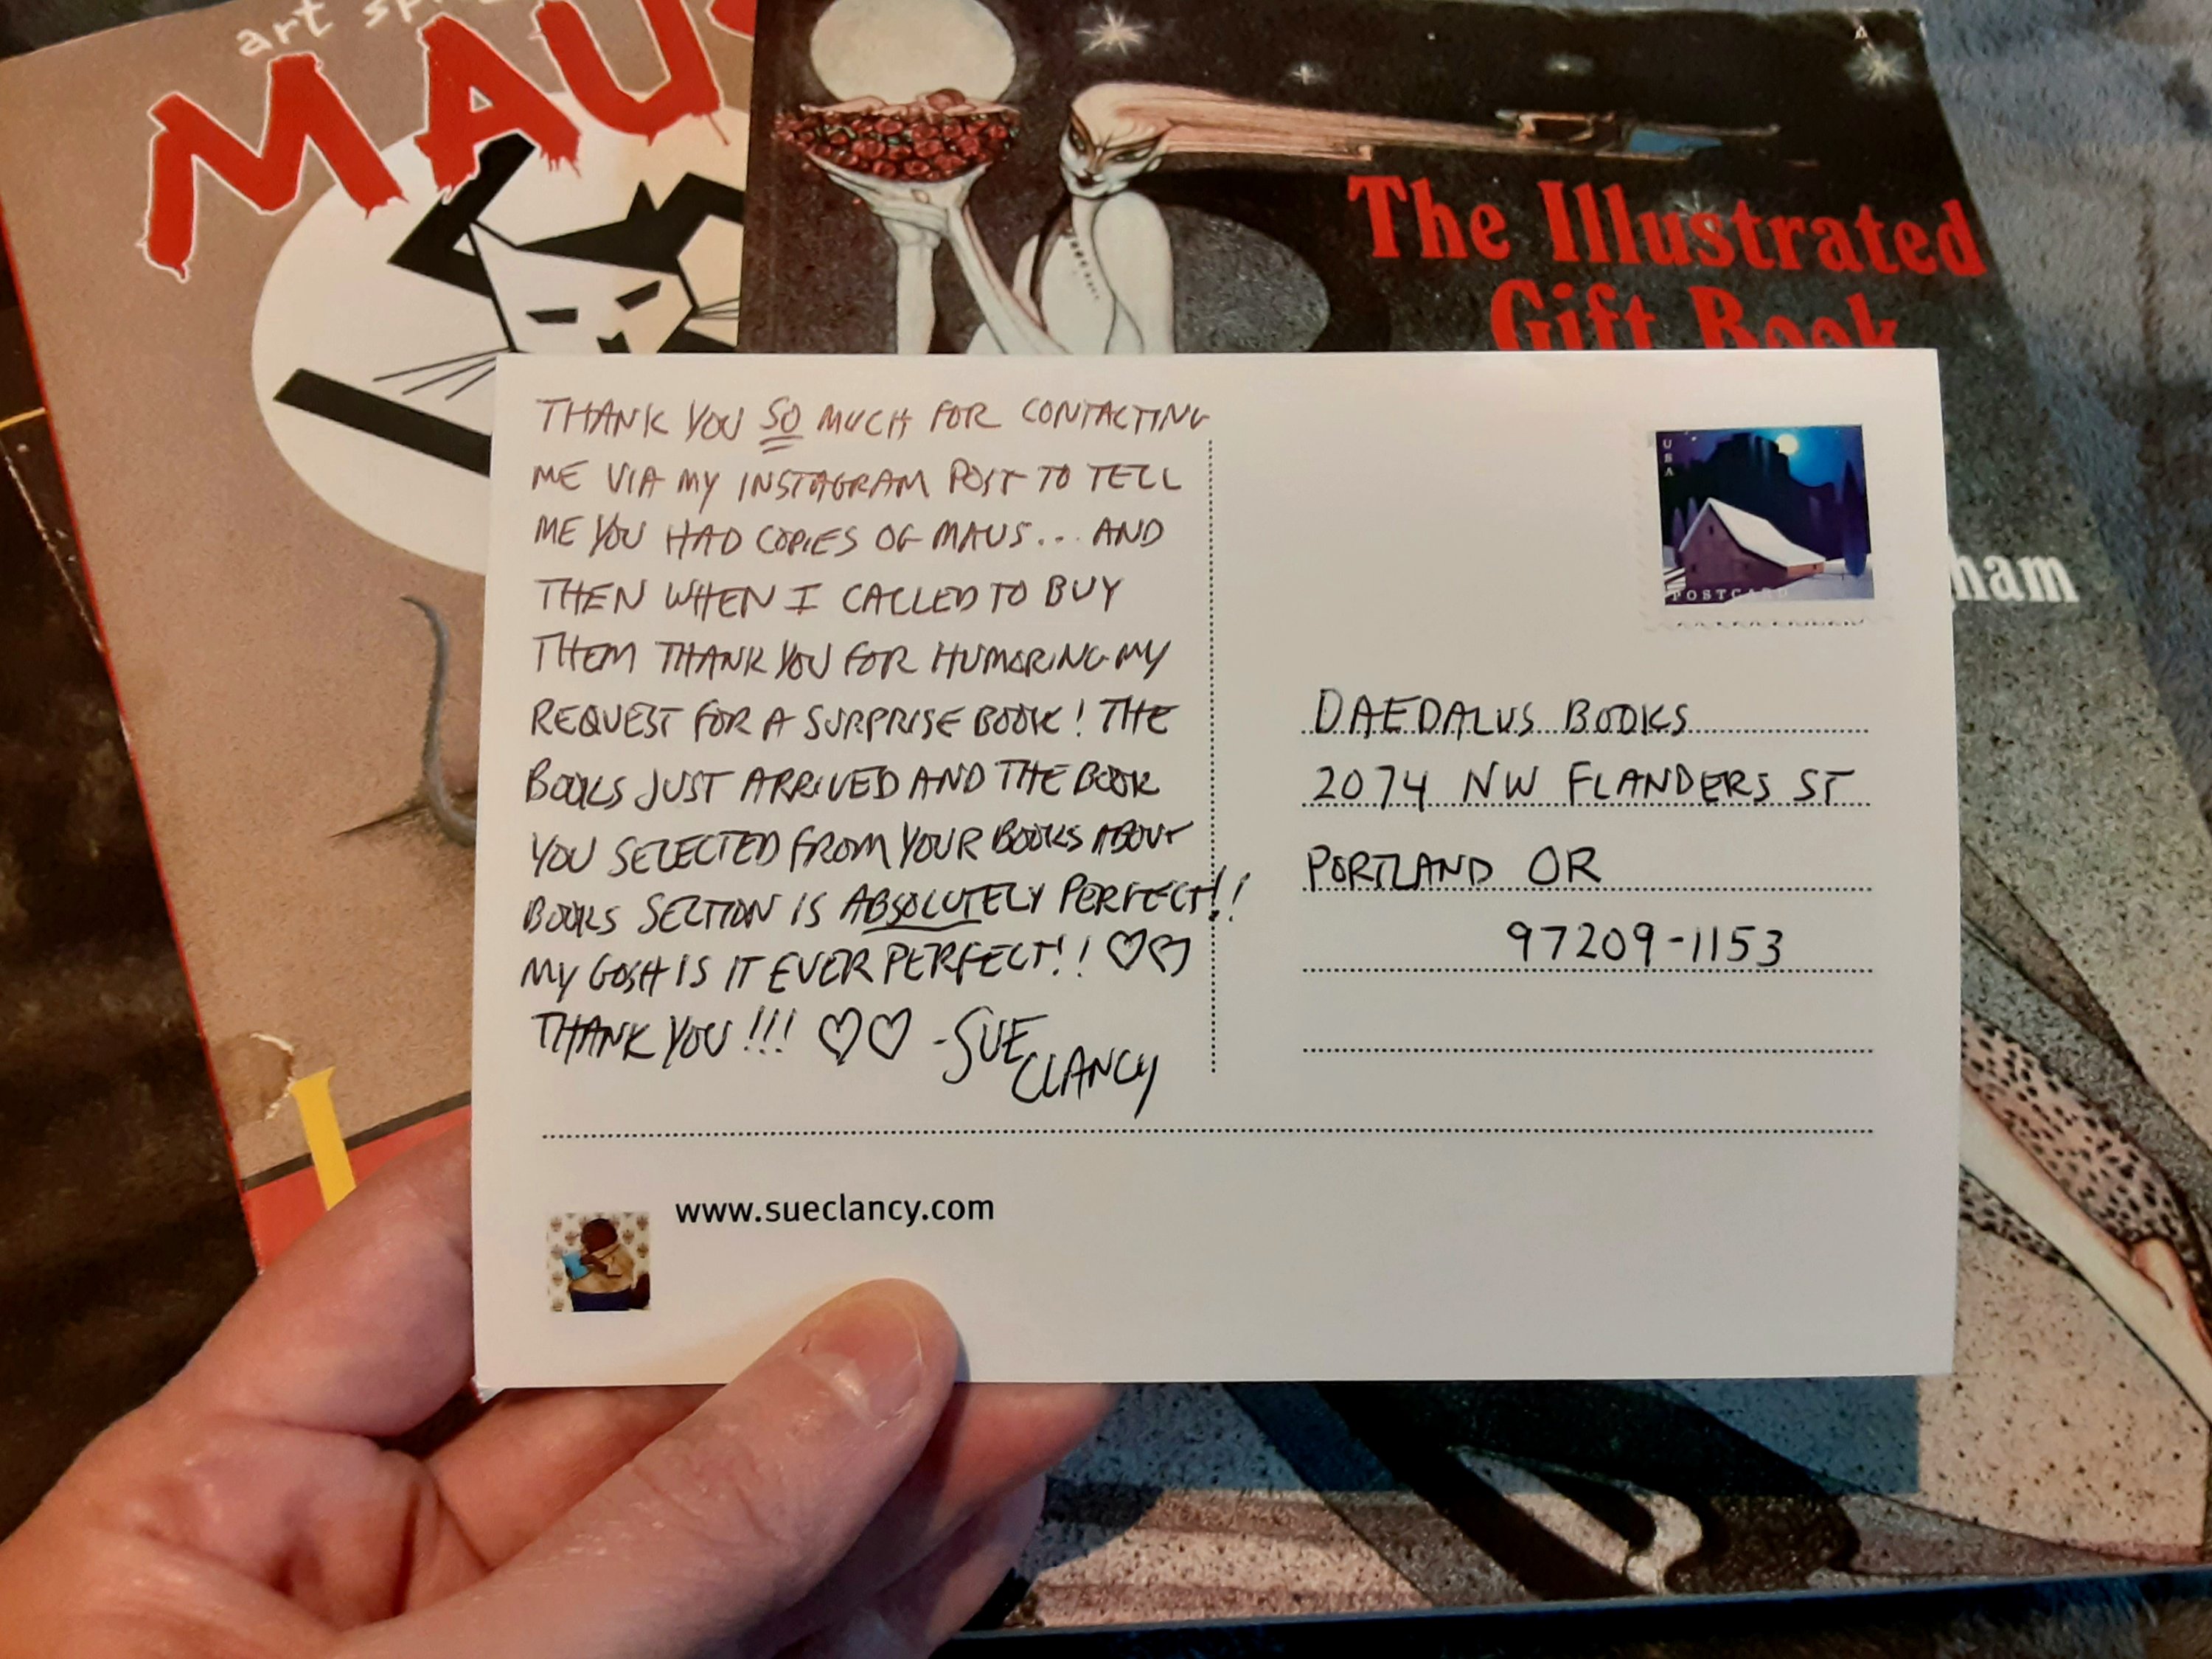 art
MAUS
The Illustrated
Gift Book
ham
THANK YOU SO MUCH FOR CONTACTING
ME VIA MY INSTAGRAM POST TO TELL
ME YOU HAD COPIES OG MAUS... AND
THEN WHEN I CALLED TO BUY
THEM THANK YOU FOR HUMORING MY
REQUEST FOR A SURPRISE BOOK! THE
BOOKS JUST ARRIVED AND THE BOOK
YOU SELECTED FROM YOUR BOOKS ABOUT
BOOKS SECTION IS ABSOLUTELY PERFECT!!
MY GOSH IS IT EVER PERFECT!! ♡♡
THANK YOU!!! ♡♡ -SUE
CLANCY
USA
POSTCARD
DAEDALUS BOOKS
2074 NW FLANDERS ST
PORTLAND OR
97209-1153
www.sueclancy.com
I